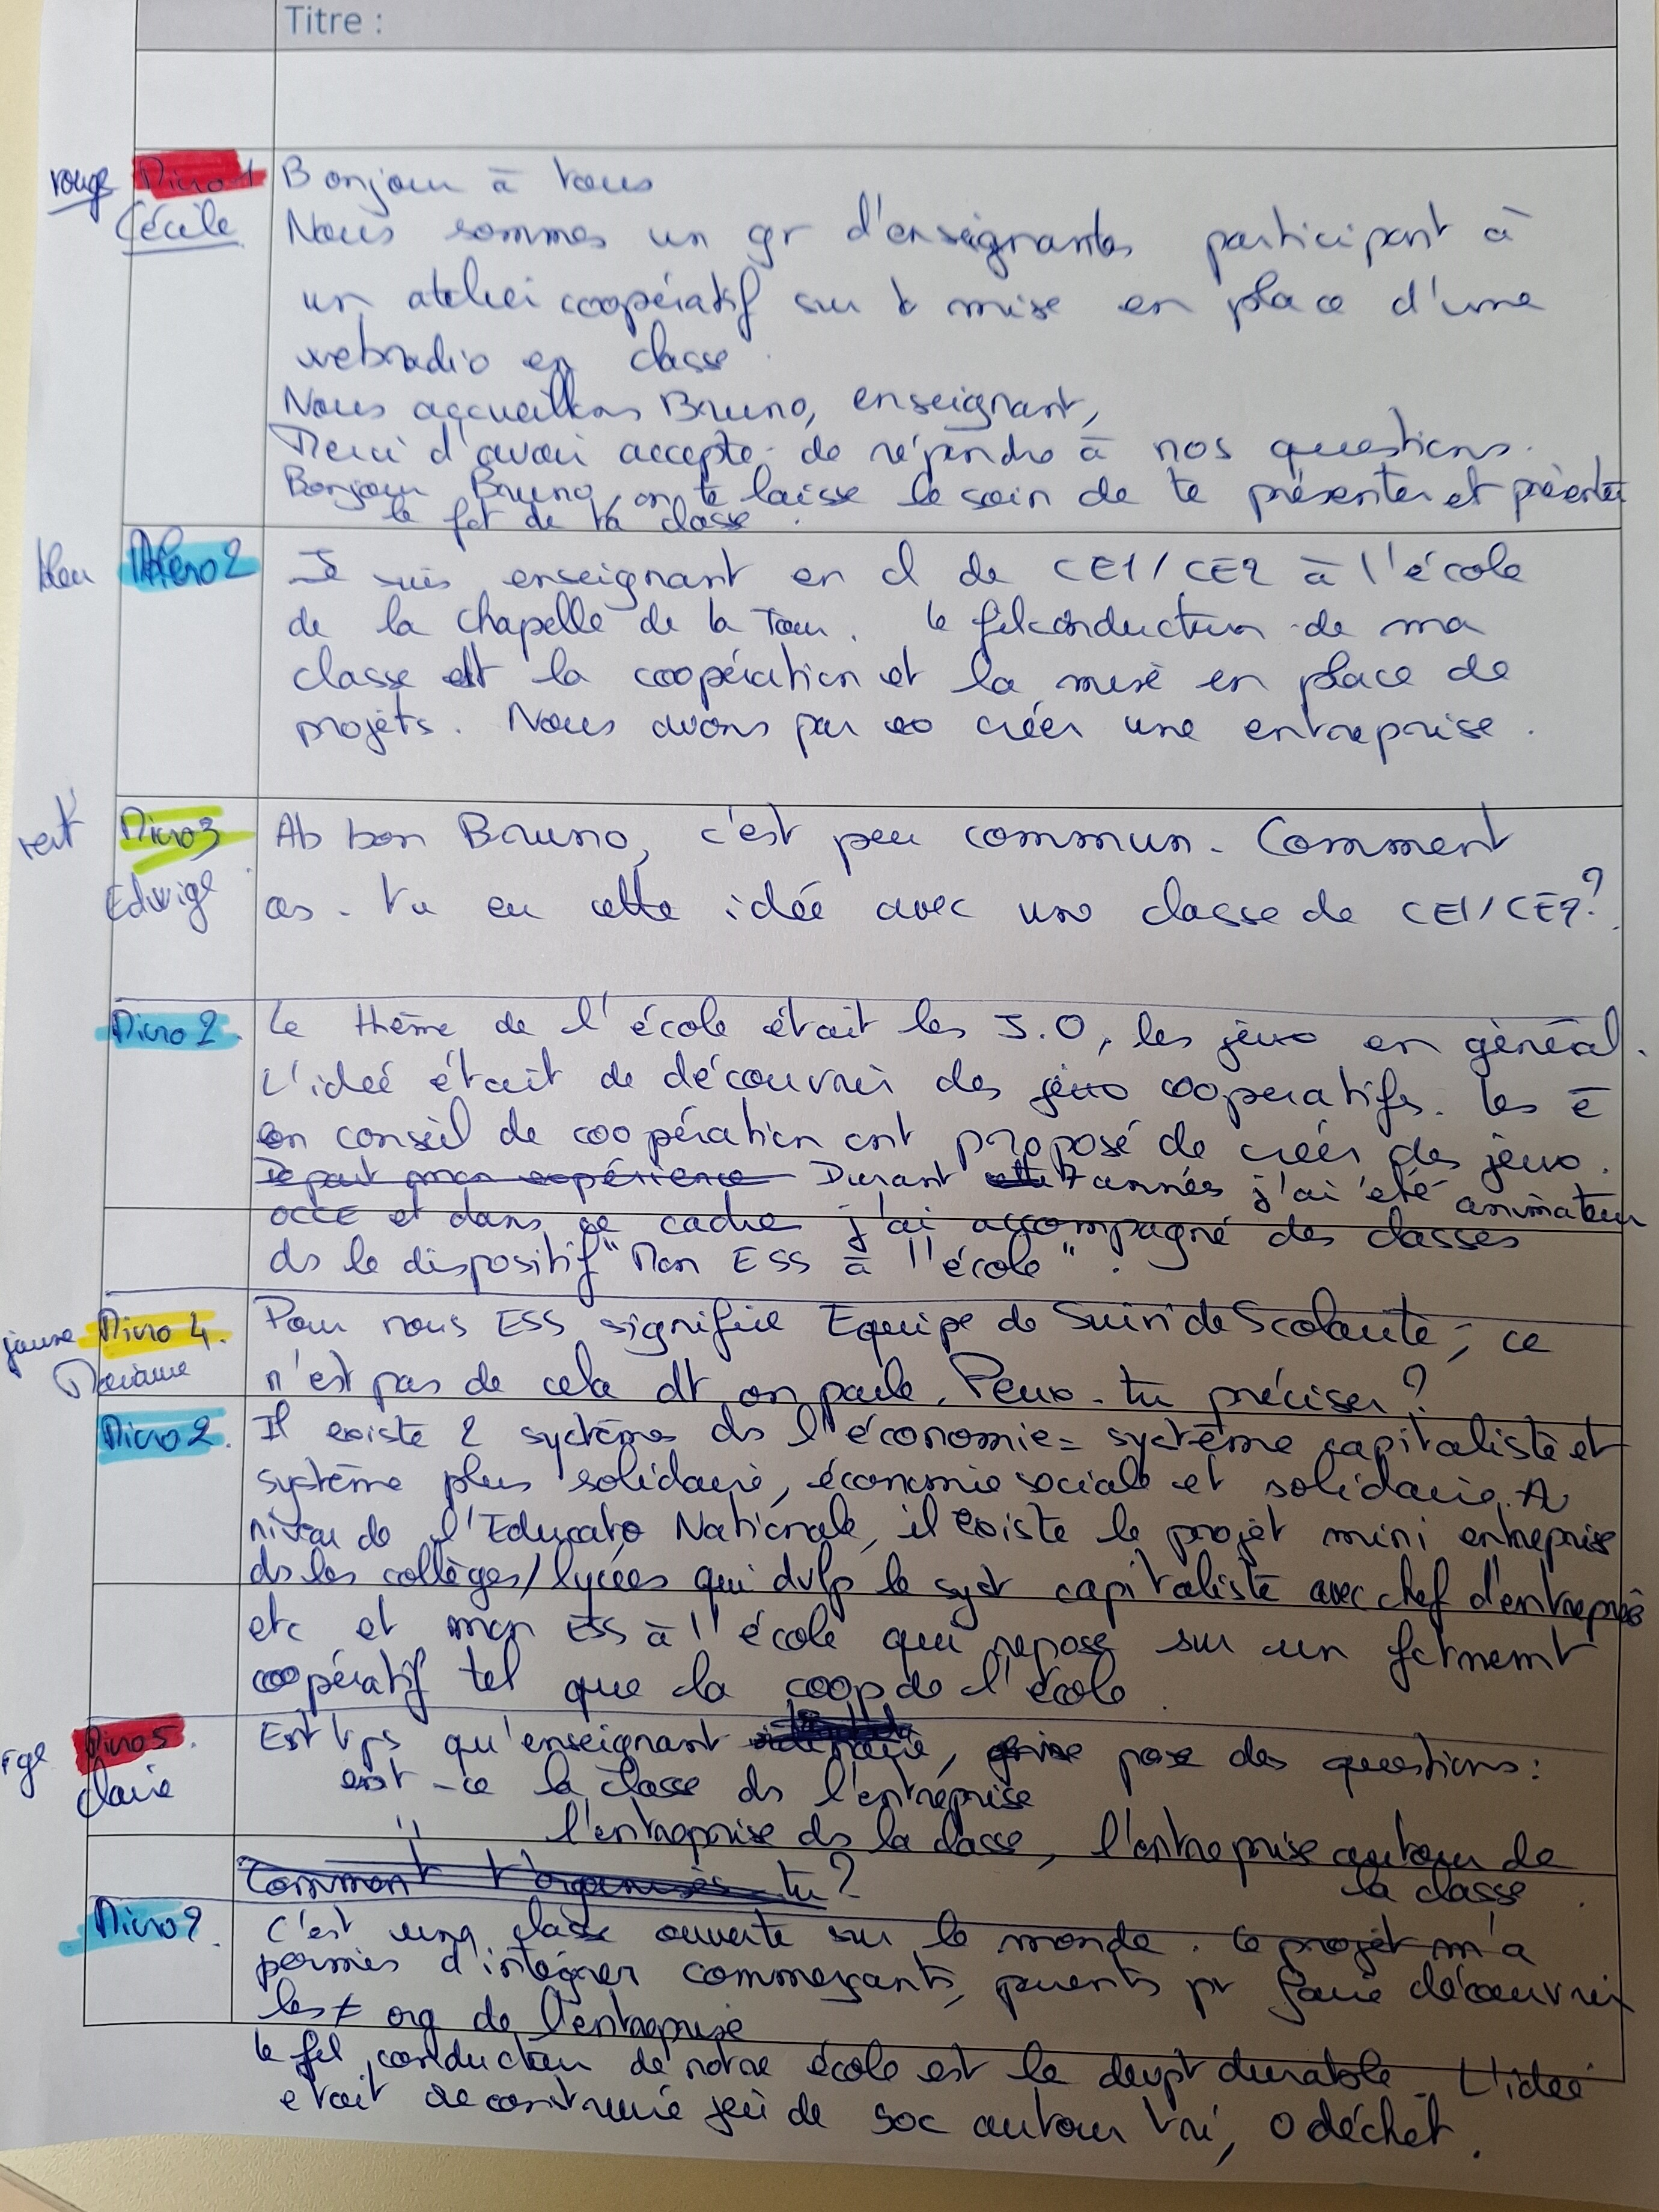 Titre :
rouge Micro 1 Bonjour à tous
Cécile Nous sommes un gr d'enseignantes participant à
un atelier coopératif sur la mise en place d'une
webradio en classe.
Nous accueillons Bruno, enseignant,
Merci d'avoir accepté de répondre à nos questions.
Bonjour Bruno, on te laisse le soin de te présenter et présenter
le fct de ta classe.
bleu Micro 2 Je suis enseignant en cl de CE1/CE2 à l'école
de la Chapelle de la Tour. Le fil conducteur de ma
classe est la coopération et la mise en place de
projets. Nous avons par ex créer une entreprise.
vert Micro 3 Ah bon Bruno, c'est peu commun. Comment
Edwige as-tu eu cette idée avec une classe de CE1/CE2?
Micro 2 Le thème de l'école était les J.O, les jeux en général.
L'idée était de découvrir des jeux coopératifs. Les é
en conseil de coopération ont proposé de créer des jeux.
De part mon expérience Durant 7 années j'ai été animateur
OCCE et dans ce cadre j'ai accompagné des classes
ds le dispositif "Mon ESS à l'école".
jaune Micro 4. Pour nous ESS signifie Equipe de Suivi de Scolarité, ce
Mariame n'est pas de cela dt on parle. Peux-tu préciser?
Micro 2. Il existe 2 systèmes ds l'économie = système capitaliste et
système plus solidaire, économie sociale et solidaire. Au
niveau de l'Educato Nationale, il existe le projet mini entreprise
ds les collèges/lycées qui dvlp le syst capitaliste avec chef d'entreprise
etc et mon ESS à l'école qui repose sur un fctnemt
coopératif tel que la coop de l'école.
rge Micro 5. En tps qu'enseignant, pose des questions :
Claire est-ce la classe ds l'entreprise
" l'entreprise ds la classe, l'entreprise autour de
la classe.
Comment t'organises-tu?
Micro 2. C'est une classe ouverte sur le monde. Le projet m'a
permis d'intégrer commerçants, parents pr faire découvrir
les ≠ org de l'entreprise
Le fil conducteur de notre école est le devpt durable. L'idée
était de construire jeu de soc autour tri, 0 déchet.